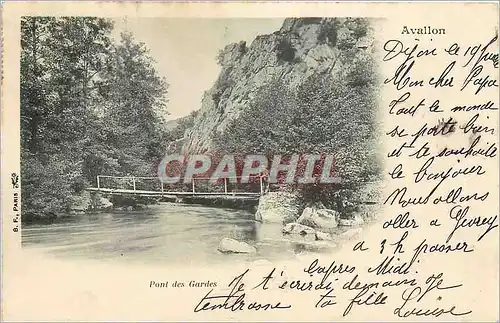 Avallon
Dijon le 19
Mon cher Papa
Tout le monde
se porte bien
et te souhaite
le bonjour
Nous allons
aller a Gevrey
a 3 h passer
l'apres Midi.
Je t'ecrirai demain Je
t'embrasse ta fille Louise
CPARAMA.COM
Pont des Gardes
B. F., PARIS